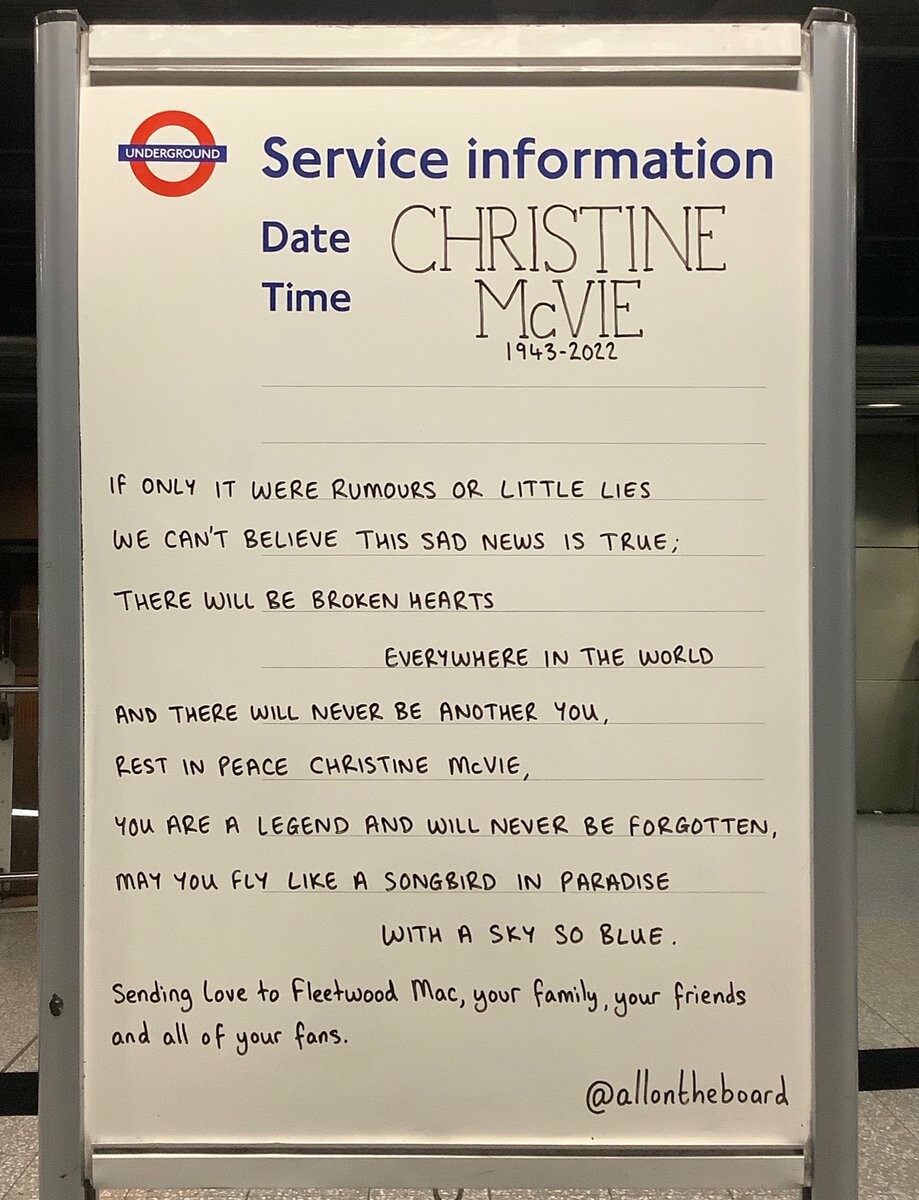 UNDERGROUND
Service information
Date CHRISTINE
Time McVIE
1943-2022
IF ONLY IT WERE RUMOURS OR LITTLE LIES
WE CAN'T BELIEVE THIS SAD NEWS IS TRUE;
THERE WILL BE BROKEN HEARTS
EVERYWHERE IN THE WORLD
AND THERE WILL NEVER BE ANOTHER YOU,
REST IN PEACE CHRISTINE McVIE,
YOU ARE A LEGEND AND WILL NEVER BE FORGOTTEN,
MAY YOU FLY LIKE A SONGBIRD IN PARADISE
WITH A SKY SO BLUE.
Sending love to Fleetwood Mac, your family, your friends
and all of your fans.
@allontheboard